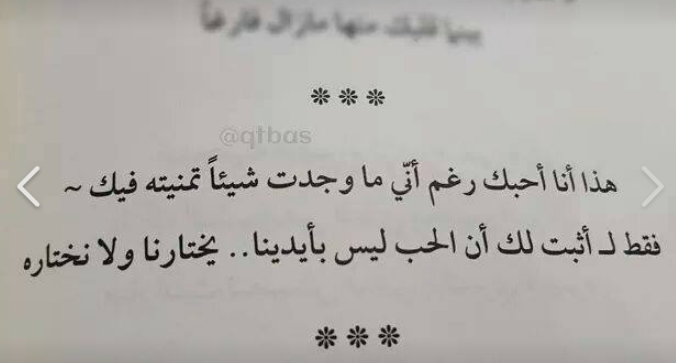 بينما قلبك منها مازال فارغاً
***
@qtbas
هذا أنا أحبك رغم أنّي ما وجدت شيئاً تمنيته فيك ~
فقط لـ أثبت لك أن الحب ليس بأيدينا.. يختارنا ولا نختاره
***